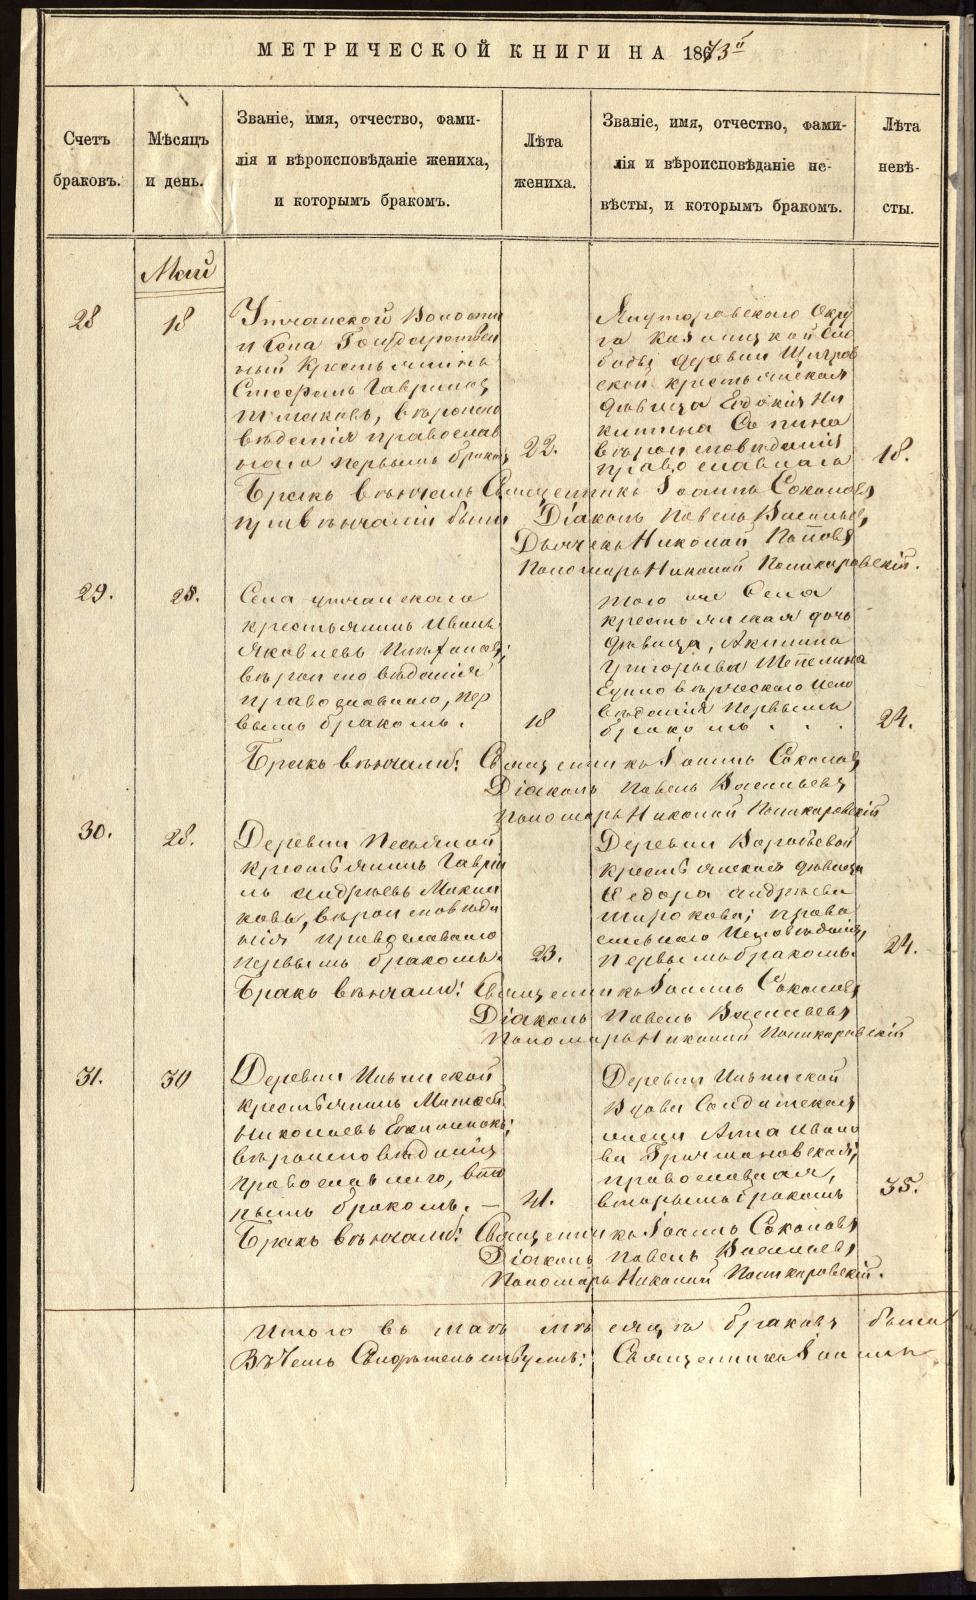 МЕТРИЧЕСКОЙ КНИГИ НА 1873й
Счетъ браковъ.
Мѣсяцъ и день.
Званіе, имя, отчество, фами-
лія и вѣроисповѣданіе жениха,
и которымъ бракомъ.
Лѣта жениха.
Званіе, имя, отчество, фами-
лія и вѣроисповѣданіе не-
вѣсты, и которымъ бракомъ.
Лѣта невѣ-
сты.
Май
28
18
Утчанской Волости
и Села Государствен
ный Крестьянинъ
Стефанъ Гавриловъ
вѣроиспо
вѣданія православ
наго первымъ бракомъ
22.
Ялуторовскаго Окру
га
деревни
ской крестьянская
дѣвица Евдокія Ни
китина
вѣроисповѣданія
православнаго
18.
Бракъ вѣнчалъ Священникъ Іоаннъ Соколовъ
при вѣнчаніи были Діаконъ Павелъ Васильевъ,
Дьячекъ Николай Поповъ
Пономарь Николай Поликаровскій.
29.
25.
Села Утчанскаго
крестьянинъ Иванъ
Яковлевъ
вѣроисповѣданія
православнаго, пер
вымъ бракомъ.
18
того же Села
крестьянская дочь
дѣвица, Акилина
Григорьева Шепелина
Единовѣрческаго испо
вѣданія первымъ
бракомъ . . .
24.
Бракъ вѣнчали: Священникъ Іоаннъ Соколовъ
Діаконъ Павелъ Васильевъ
Пономарь Николай Поликаровскій
30.
28.
Деревни Песьяной
крестьянинъ Гаврі
лъ Андреевъ
вѣроисповѣда
нія православнаго
первымъ бракомъ.
23.
Деревни Воробьевой
крестьянская дѣвица
Ѳедора Андреева
Широкова; право
славнаго исповѣданія,
первымъ бракомъ.
24.
Бракъ вѣнчали: Священникъ Іоаннъ Соколовъ
Діаконъ Павелъ Васильевъ
Пономарь Николай Поликаровскій
31.
30
Деревни Ильинской
крестьянинъ Матвей
Николаевъ
вѣроисповѣданія
православнаго, вто
рымъ бракомъ. —
41.
Деревни Ильинской
Вдова Солдатская
Анна Ивано
ва
православная,
вторымъ бракомъ
35.
Бракъ вѣнчали: Священникъ Іоаннъ Соколовъ
Діаконъ Павелъ Васильевъ
Пономарь Николай Поликаровскій.
Итого въ маѣ мѣсяцѣ браковъ было
Въ чемъ Свидѣтельствуемъ: Священникъ Іоаннъ